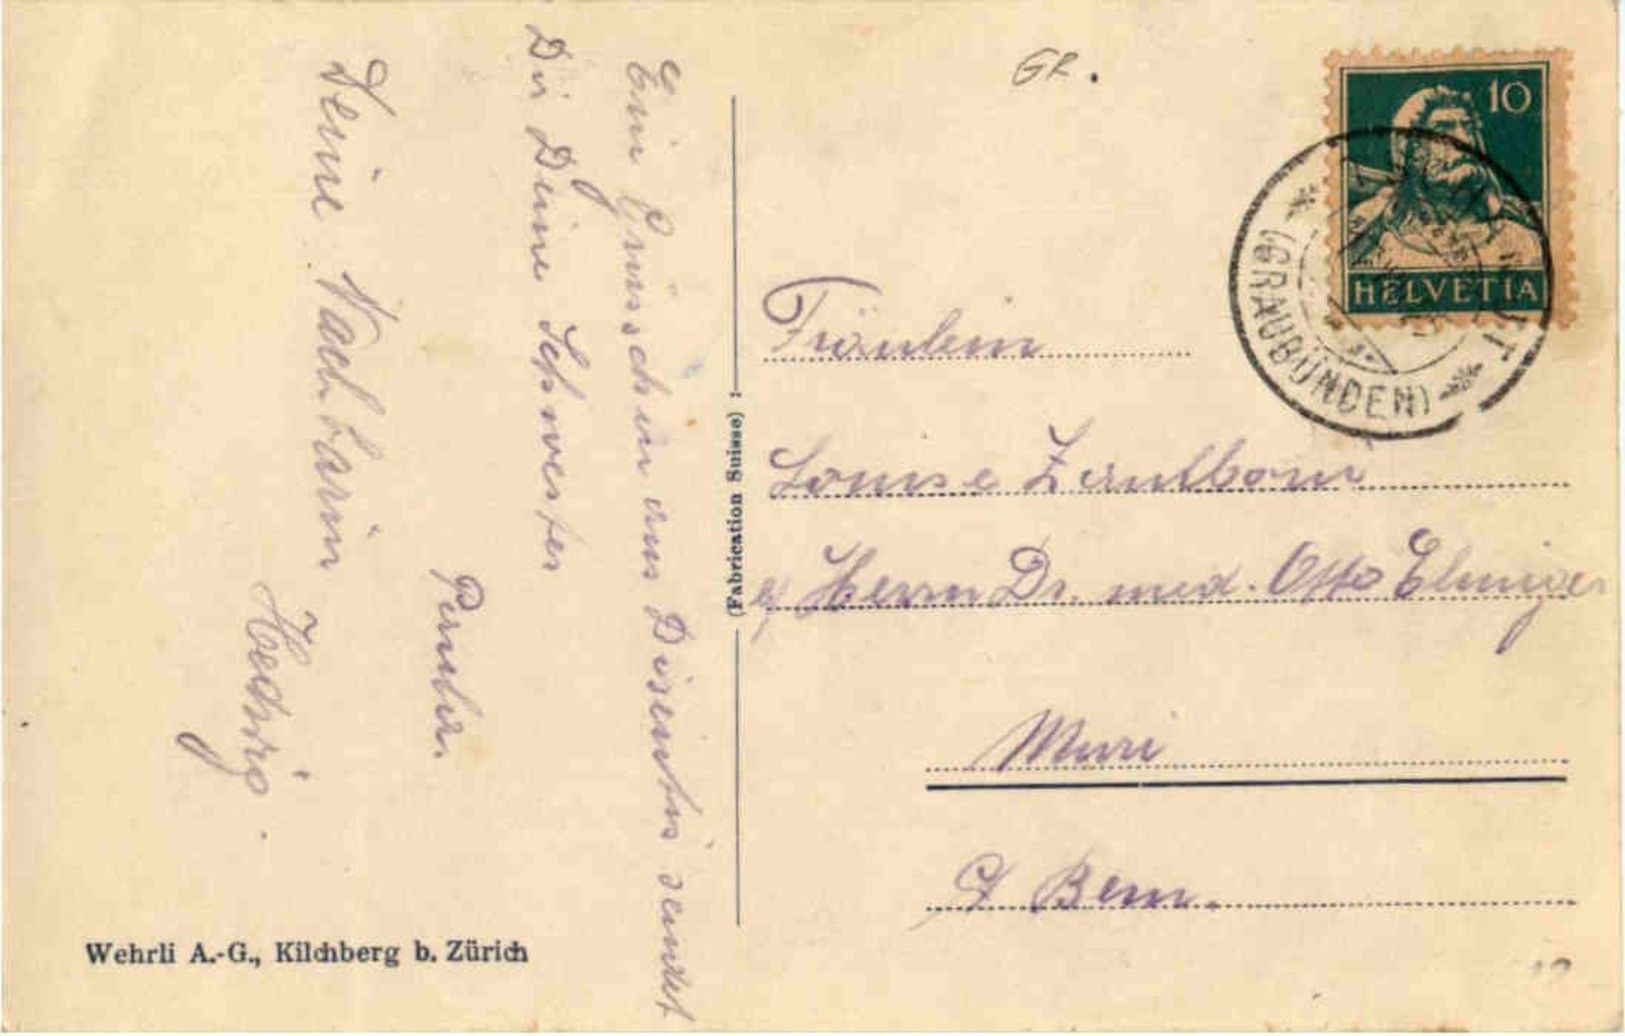 Ein Grüsschen aus Disentis sendet
Dir Deine Schwester
Deine Nachbarin
Hedwig.
GR.
10
HELVETIA
(GRAUBÜNDEN)
(Fabrication Suisse) :
Fräulein
Louise
Herrn Dr. med. Otto Elmiger
Muri
Bern.
Wehrli A.-G., Kilchberg b. Zürich